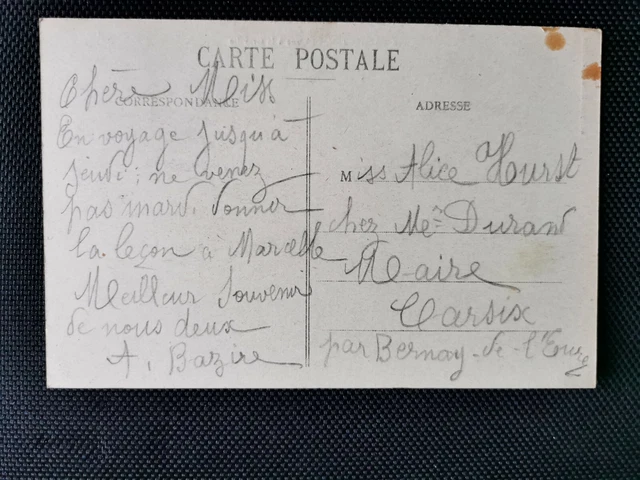 CARTE POSTALE
CORRESPONDANCE
Chère Miss
En voyage jusqu'à
jeudi; ne venez
pas mardi donner
la leçon à Marcelle
Meilleur souvenir
de nous deux
A. Bazire
ADRESSE
Miss Alice Hurst
chez Me Durand
Maire
Carsix
par Bernay-de-l'Eure